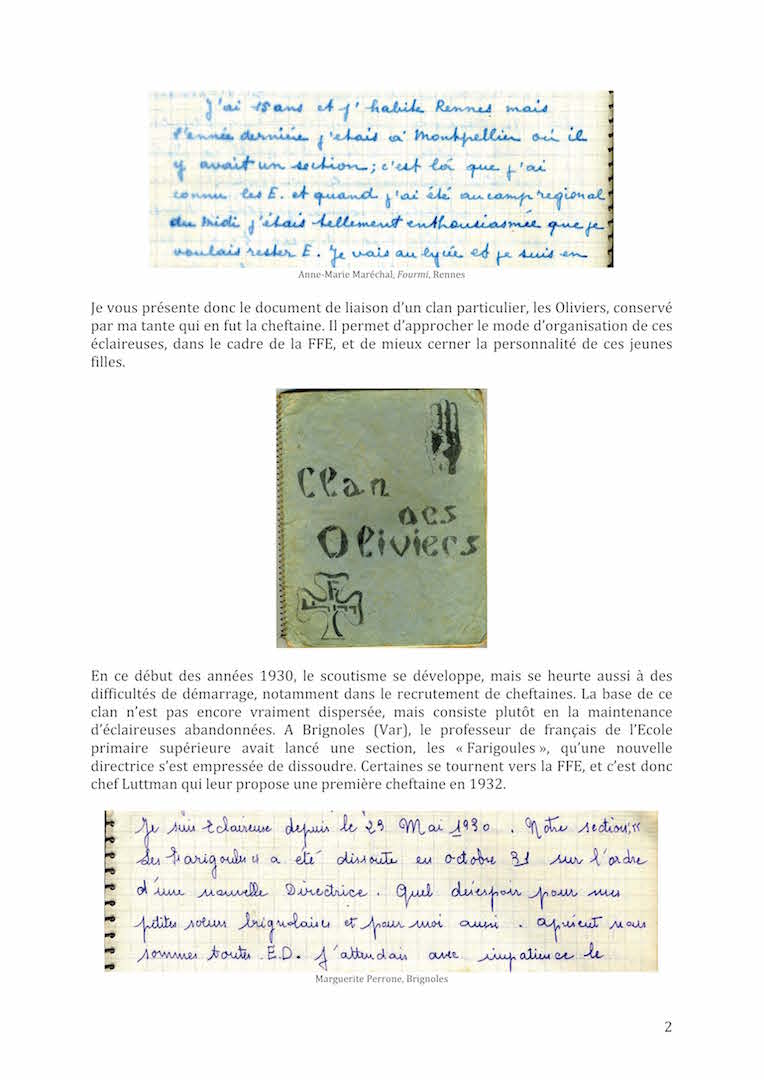 J'ai 15 ans et j'habite Rennes mais
l'année dernière j'etais à Montpellier où il
y avait un section ; c'est là que j'ai
connu les E. et quand j'ai été au camp regional
du Midi j'étais tellement enthousiasmée que je
voulais rester E. Je vais au lycée et je suis en
Anne-Marie Maréchal, Fourmi, Rennes
Je vous présente donc le document de liaison d'un clan particulier, les Oliviers, conservé
par ma tante qui en fut la cheftaine. Il permet d'approcher le mode d'organisation de ces
éclaireuses, dans le cadre de la FFE, et de mieux cerner la personnalité de ces jeunes
filles.
Clan
des
Oliviers
F F E
En ce début des années 1930, le scoutisme se développe, mais se heurte aussi à des
difficultés de démarrage, notamment dans le recrutement de cheftaines. La base de ce
clan n'est pas encore vraiment dispersée, mais consiste plutôt en la maintenance
d'éclaireuses abandonnées. A Brignoles (Var), le professeur de français de l'Ecole
primaire supérieure avait lancé une section, les « Farigoules », qu'une nouvelle
directrice s'est empressée de dissoudre. Certaines se tournent vers la FFE, et c'est donc
chef Luttman qui leur propose une première cheftaine en 1932.
Je suis Eclaireuse depuis le 29 Mai 1930. Notre section, "
Les Farigoules " a eté dissoute en octobre 31 sur l'ordre
d'une nouvelle Directrice. Quel désespoir pour mes
petites soeurs brignolaises et pour moi aussi. à présent nous
sommes toutes E.D. J'attendais avec impatience le
Marguerite Perrone, Brignoles
2